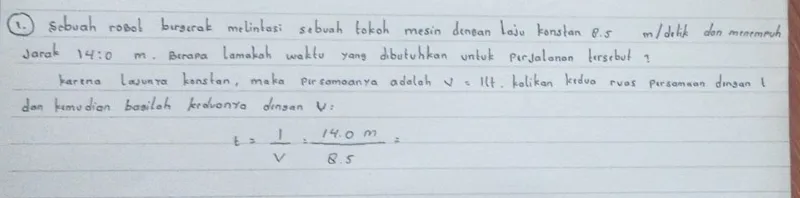 1. Sebuah robot bergerak melintasi sebuah tokoh mesin dengan laju konstan 8.5 m/detik dan menempuh
Jarak 14:0 m. Berapa lamakah waktu yang dibutuhkan untuk perjalanan tersebut ?
karena lajunya konstan, maka persamaanya adalah V = 1(t. kalikan kedua ruas persamaan dengan t
dan kemudian bagilah keduanya dengan V:
t = 1/V = 14.0 m/8.5 =